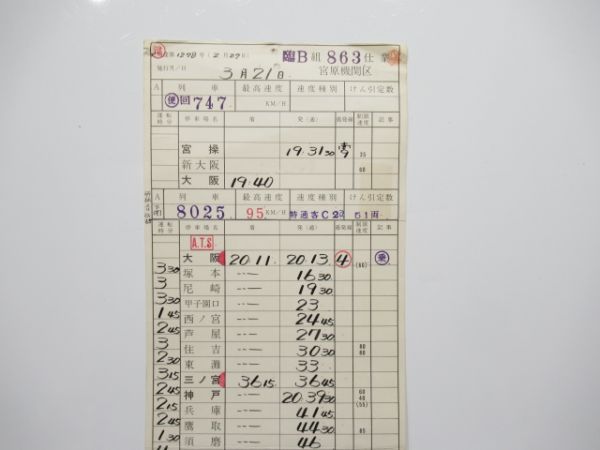 臨B 組 863 仕業
3月21日 宮原機関区
A 列車 最高速度 速度種別 けん引定数
便 回 747 KM/H
運転時分 停車場名 着 発(通) 着発線 制限速度 記事
宮操 19.31 30 35
新大阪 60
大阪 19.40
A 列車 最高速度 速度種別 けん引定数
8025 95 KM/H 特通客C2 51両
運転時分 停車場名 着 発(通) 着発線 制限速度 記事
A.T.S
大阪 20.11. 20.13. 4 (60) 乗
3 30 塚本 ・・ー 16 30
3 尼崎 ・・ー 19 30
3 30 甲子園口 ・・ー 23
1 45 西ノ宮 ・・ー 24 45
2 45 芦屋 ・・ー 27 30
3 住吉 ・・ー 30 30 60 60
2 30 東灘 ・・ー 33
3 15 三ノ宮 36 15 36 45
2 45 神戸 20.39 30 60 40 (55)
2 15 兵庫 ・・ー 41 45
2 45 鷹取 ・・ー 44 30 85
1 30 須磨 ・・ー 46